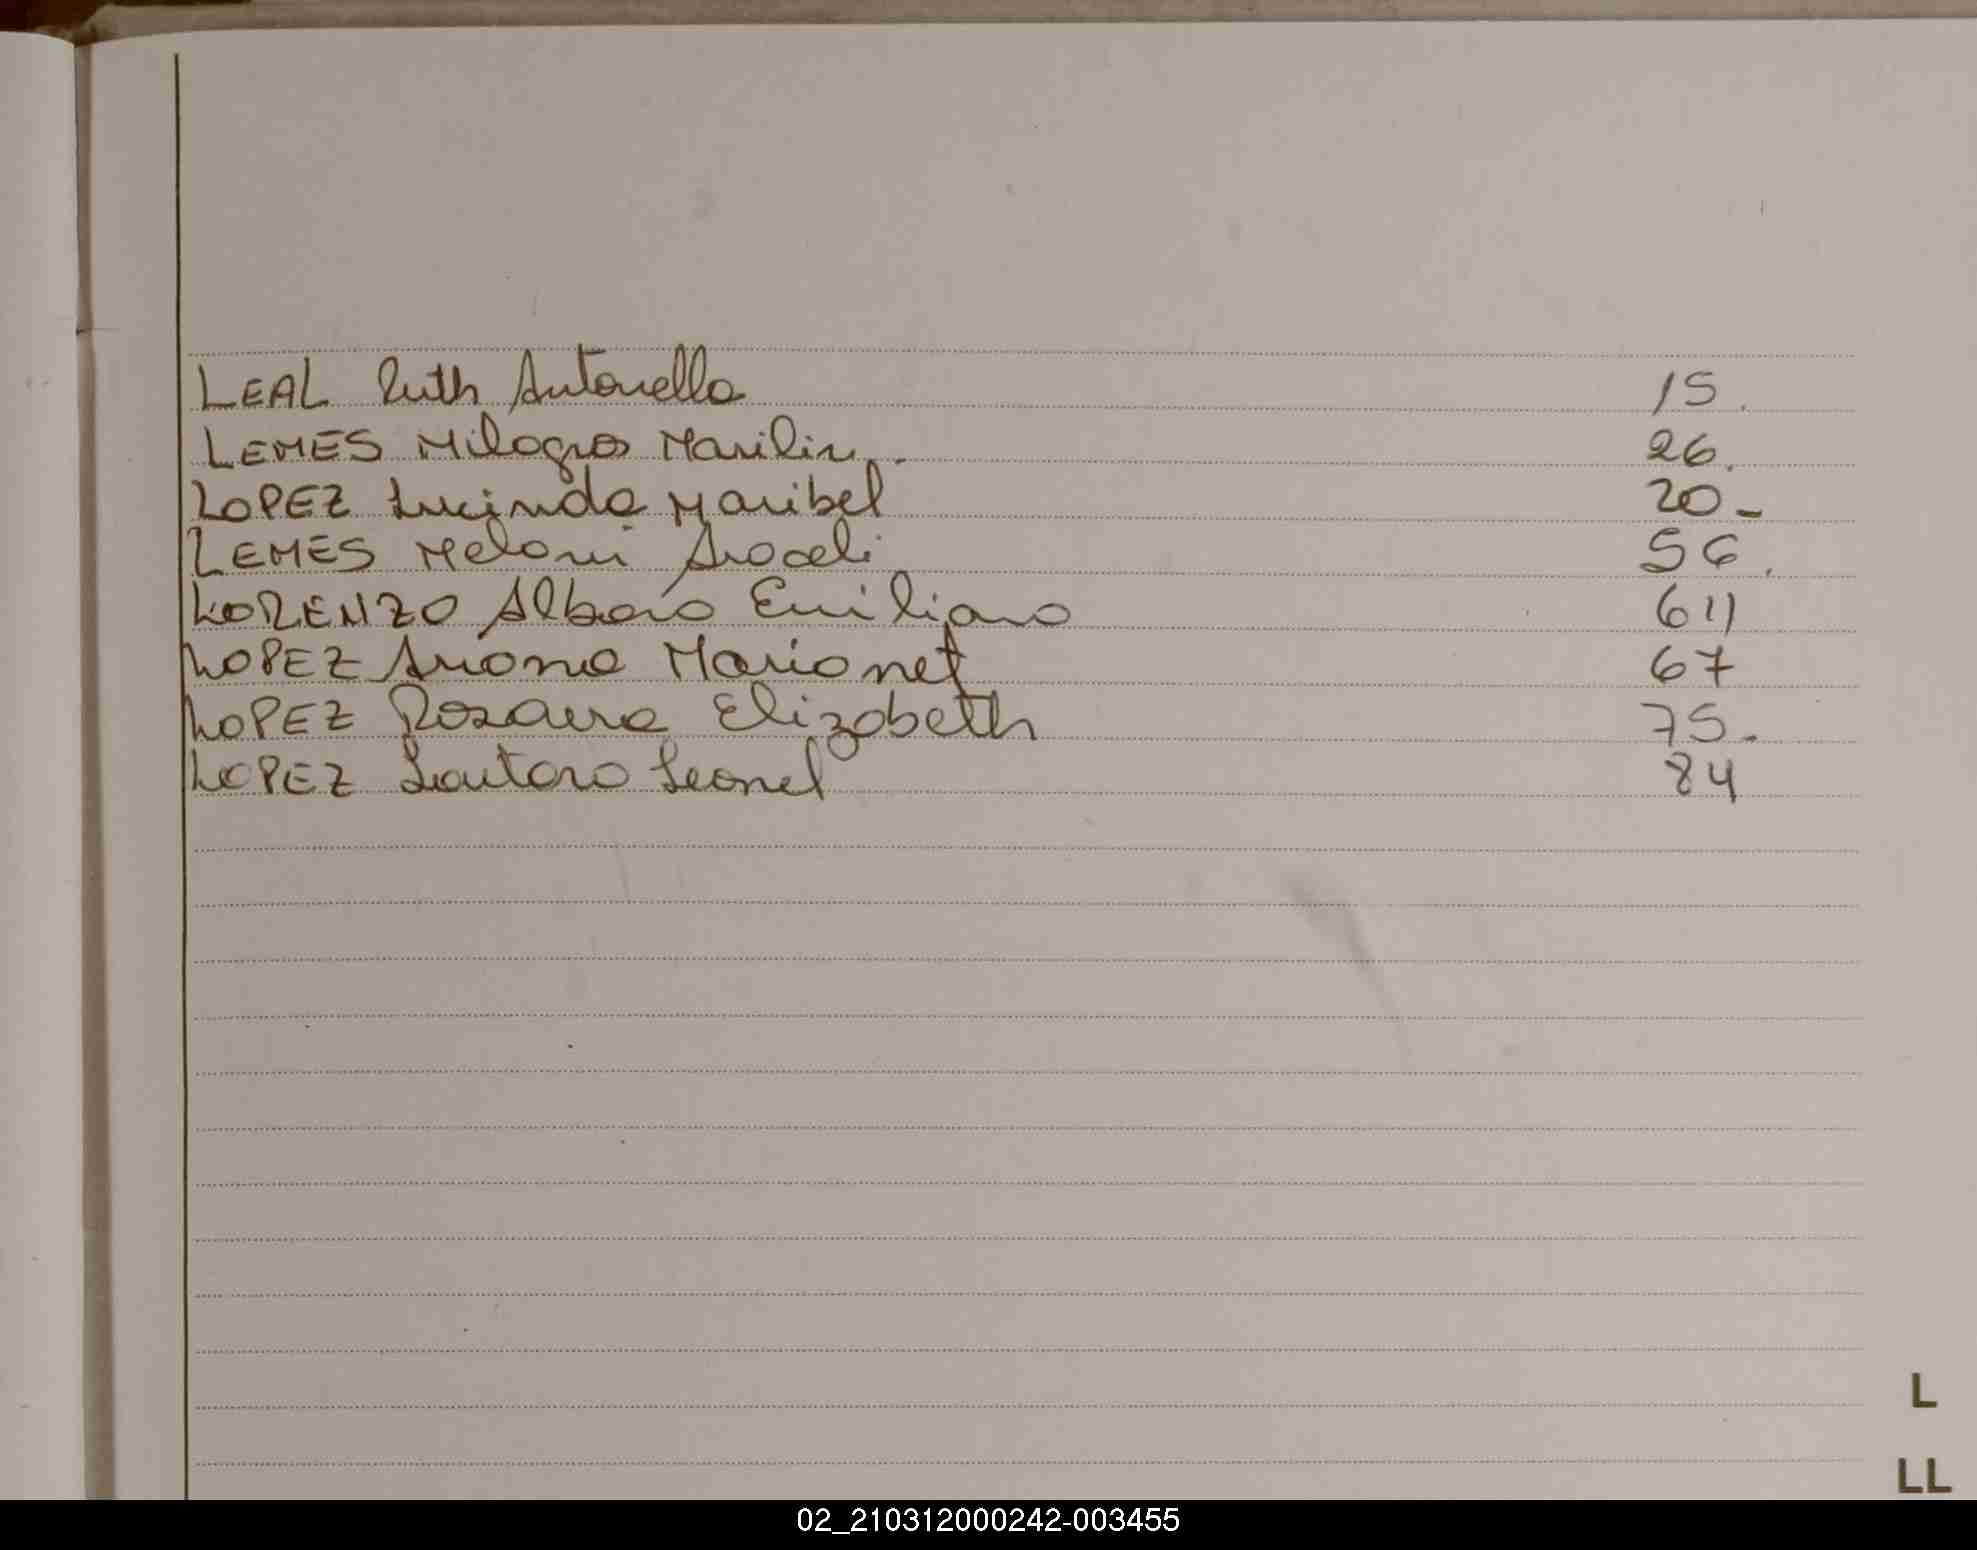 LEAL Ruth Antonella 15.
LEMES Milagros Marilin. 26.
LOPEZ Lucinda Maribel 20-
LEMES Melani Araceli 56.
LORENZO Albaro Emiliano 64
LOPEZ Marionet 67
LOPEZ Rosaura Elizabeth 75.
LOPEZ Lautaro Leonel 84
L
LL
02_210312000242-003455